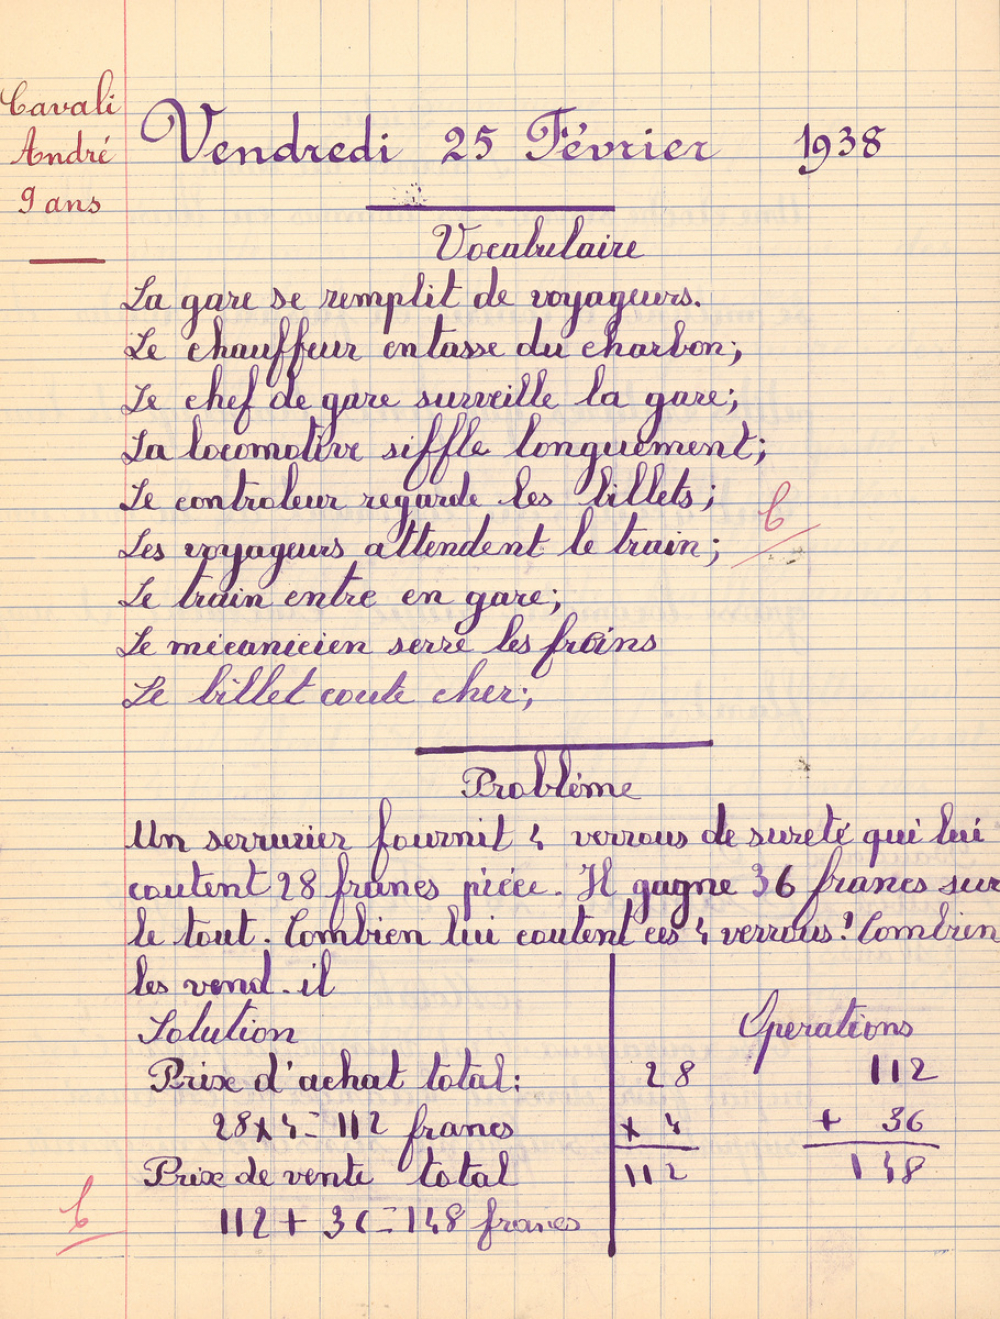 Cavali
André
9 ans
Vendredi 25 Février 1938
Vocabulaire
La gare se remplit de voyageurs.
Le chauffeur entasse du charbon;
Le chef de gare surveille la gare;
La locomotive siffle longuement;
Le controleur regarde les billets;
b
Les voyageurs attendent le train;
Le train entre en gare;
Le mécanicien serre les freins
Le billet coute cher;
Problème
Un serrurier fournit 4 verrous de sureté qui lui
coutent 28 francs pièce. Il gagne 36 francs sur
le tout. Combien lui coutent ces 4 verrous? Combien
les vend-il
Solution
Prix d'achat total:
28 x 4 = 112 francs
Prix de vente total
112 + 36 = 148 francs
b
Operations
28
x 4
112
112
+ 36
148